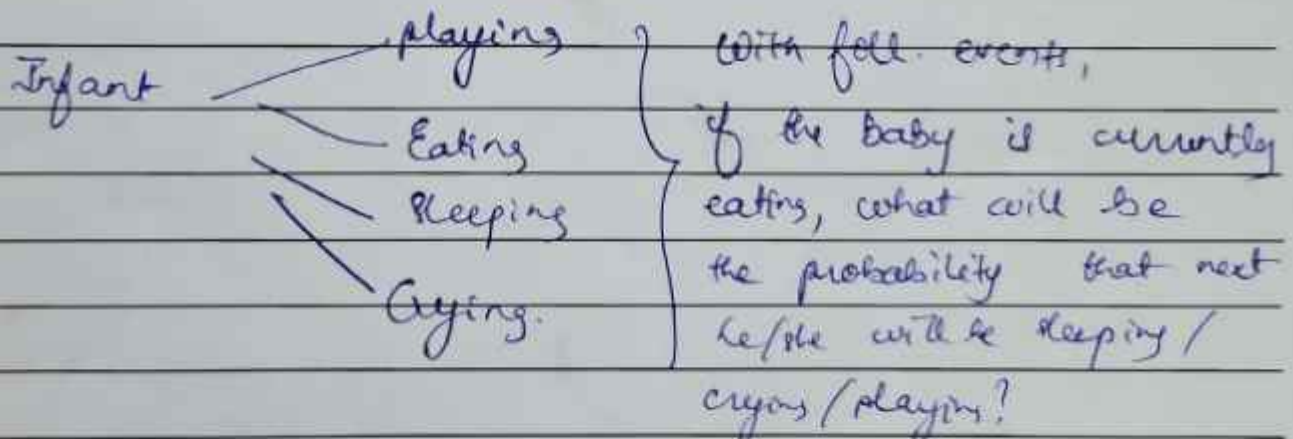 Infant
playing
Eating
Sleeping
Crying.
with foll. events,
if the baby is currently
eating, what will be
the probability that next
he/she will be sleeping/
crying/playing?